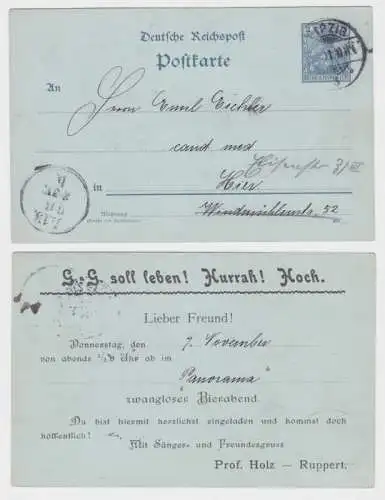 Deutsche Reichspost
Postkarte
An
Herrn Emil Eichler
cand med
Eisenstr
in Hier
Windmühlenstr. 52
G.-G. soll leben! Hurrah! Hoch.
Lieber Freund!
Donnerstag, den 7. November
von abends Uhr ab im
"Panorama"
zwangloser Bierabend.
Du bist hiermit herzlichst eingeladen und kommst doch
hoffentlich!
Mit Sänger- und Freundesgruss
Prof. Holz — Ruppert.